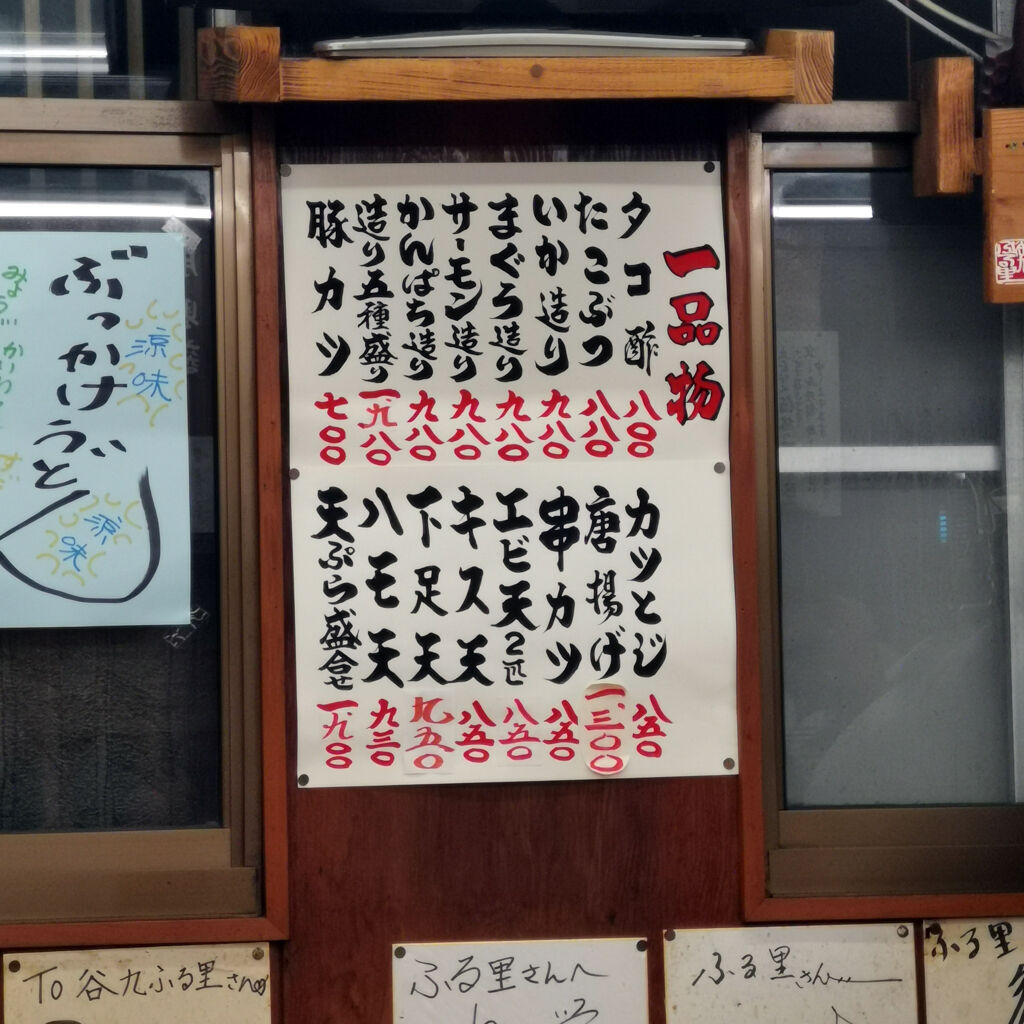 一品物
タコ酢 八〇〇
たこぶつ 八八〇
いか造り 九八〇
まぐろ造り 九八〇
サーモン造り 九八〇
かんぱち造り 九八〇
造り五種盛り 一、九八〇
豚カツ 七〇〇
カツとじ 八五〇
唐揚げ 一、三〇〇
串カツ 八五〇
エビ天2匹 八五〇
キス天 八五〇
下足天 九五〇
ハモ天 九三〇
天ぷら盛合せ 一、九〇〇
涼味
ぶっかけうどん
涼味
To 谷九ふる里さん江
ふる里さんへ
ふる里さんへ
ふる里